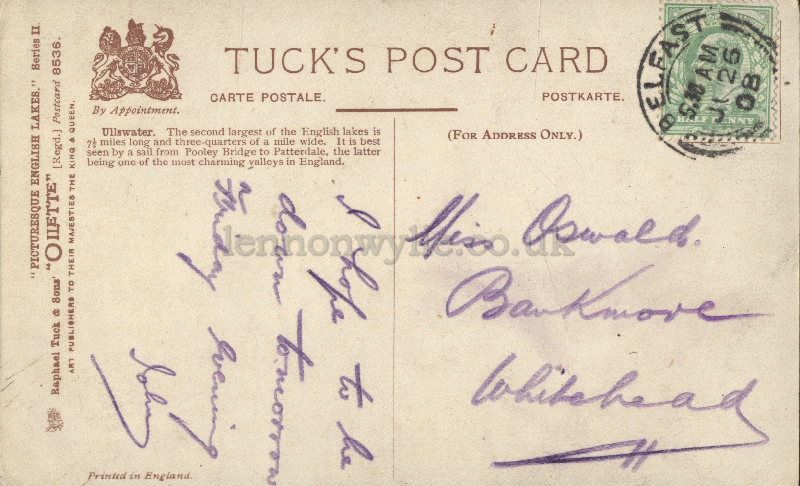 "PICTURESQUE ENGLISH LAKES." Series II.
Raphael Tuck & Sons' "OILETTE" [Regd.] Postcard 8536.
ART PUBLISHERS TO THEIR MAJESTIES THE KING & QUEEN.
By Appointment.
TUCK'S POST CARD
CARTE POSTALE.
POSTKARTE.
Ullswater. The second largest of the English lakes is
7½ miles long and three-quarters of a mile wide. It is best
seen by a sail from Pooley Bridge to Patterdale, the latter
being one of the most charming valleys in England.
(FOR ADDRESS ONLY.)
BELFAST
AM
26
08
HALF PENNY
I hope to be
down to-morrow
Friday evening
John
Miss Oswald.
Bankmore
Whitehead
lennonwylie.co.uk
Printed in England.